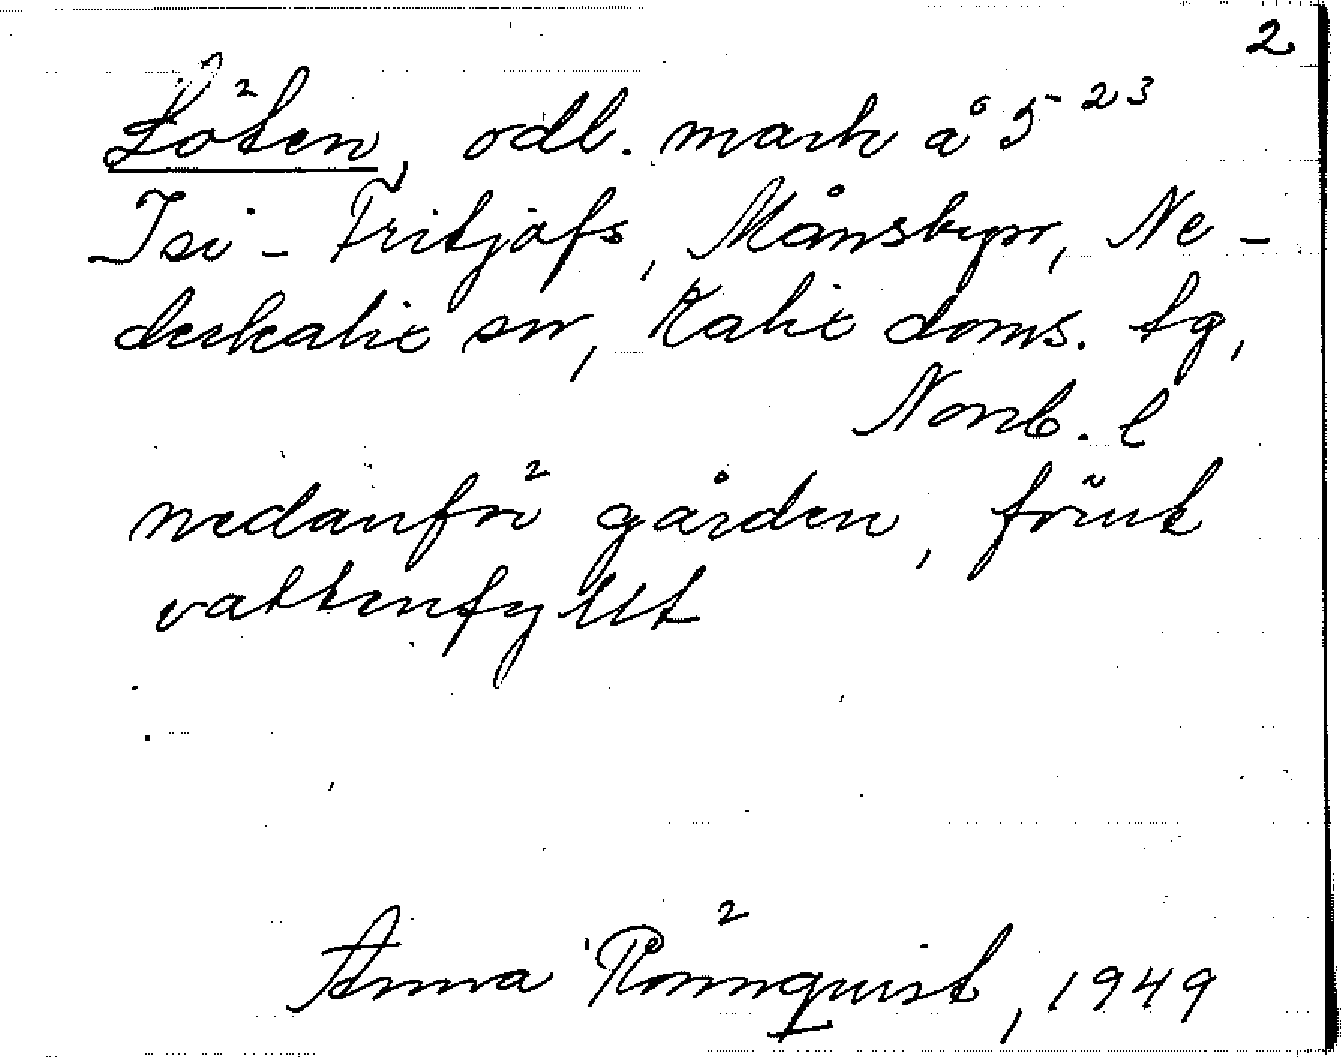 2
Löten, odl. mark å 5 23
Isi - Fritjofs, Månsbyn, Ne-
derkalix sn, Kalix doms. tg,
Norrb. l
nedanför gården, förut
vattenfyllt
Anna Rönnquist, 1949